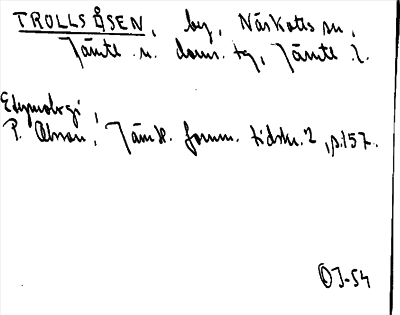 TROLLSÅSEN, by, Näskotts sn,
Jämtl. n. doms. tg, Jämtl. l.
Etymologi,
P. Olsson, Jämtl. fornm. tidskr. 2, s. 157.
OJ-54